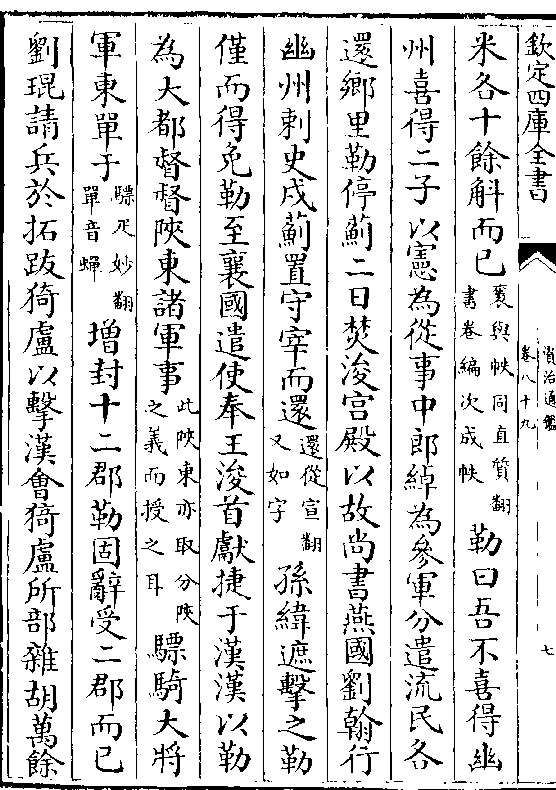 欽定四庫全書
資治通鑑
卷八十九
七
米各十餘斛而已
袠與帙同直質翻
書卷編次成帙
勒曰吾不喜得幽
州喜得二子以憲為從事中郎綽為參軍分遣流民各
還鄉里勒停薊二日焚浚宫殿以故尚書燕國劉翰行
幽州刺史戍薊置守宰而還
還從宣翻
又如字
孫緯遮擊之勒
僅而得免勒至襄國遣使奉王浚首獻捷于漢漢以勒
為大都督督陜東諸軍事
此陜東亦取分陜
之義而授之耳
驃騎大將
軍東單于
驃疋妙翻
單音蟬
增封十二郡勒固辭受二郡而已
劉琨請兵於拓跋猗盧以擊漢會猗盧所部雜胡萬餘